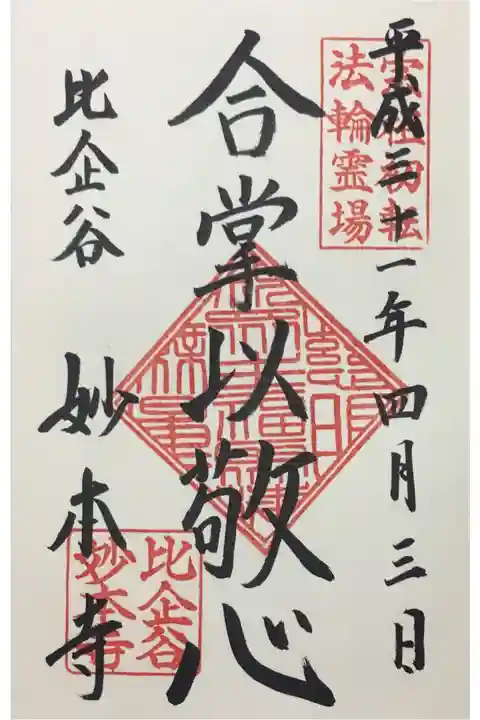 平成三十一年四月三日
宗祖初転
法輪霊場
合掌以敬心
比企谷 妙本寺
比企谷
妙本寺